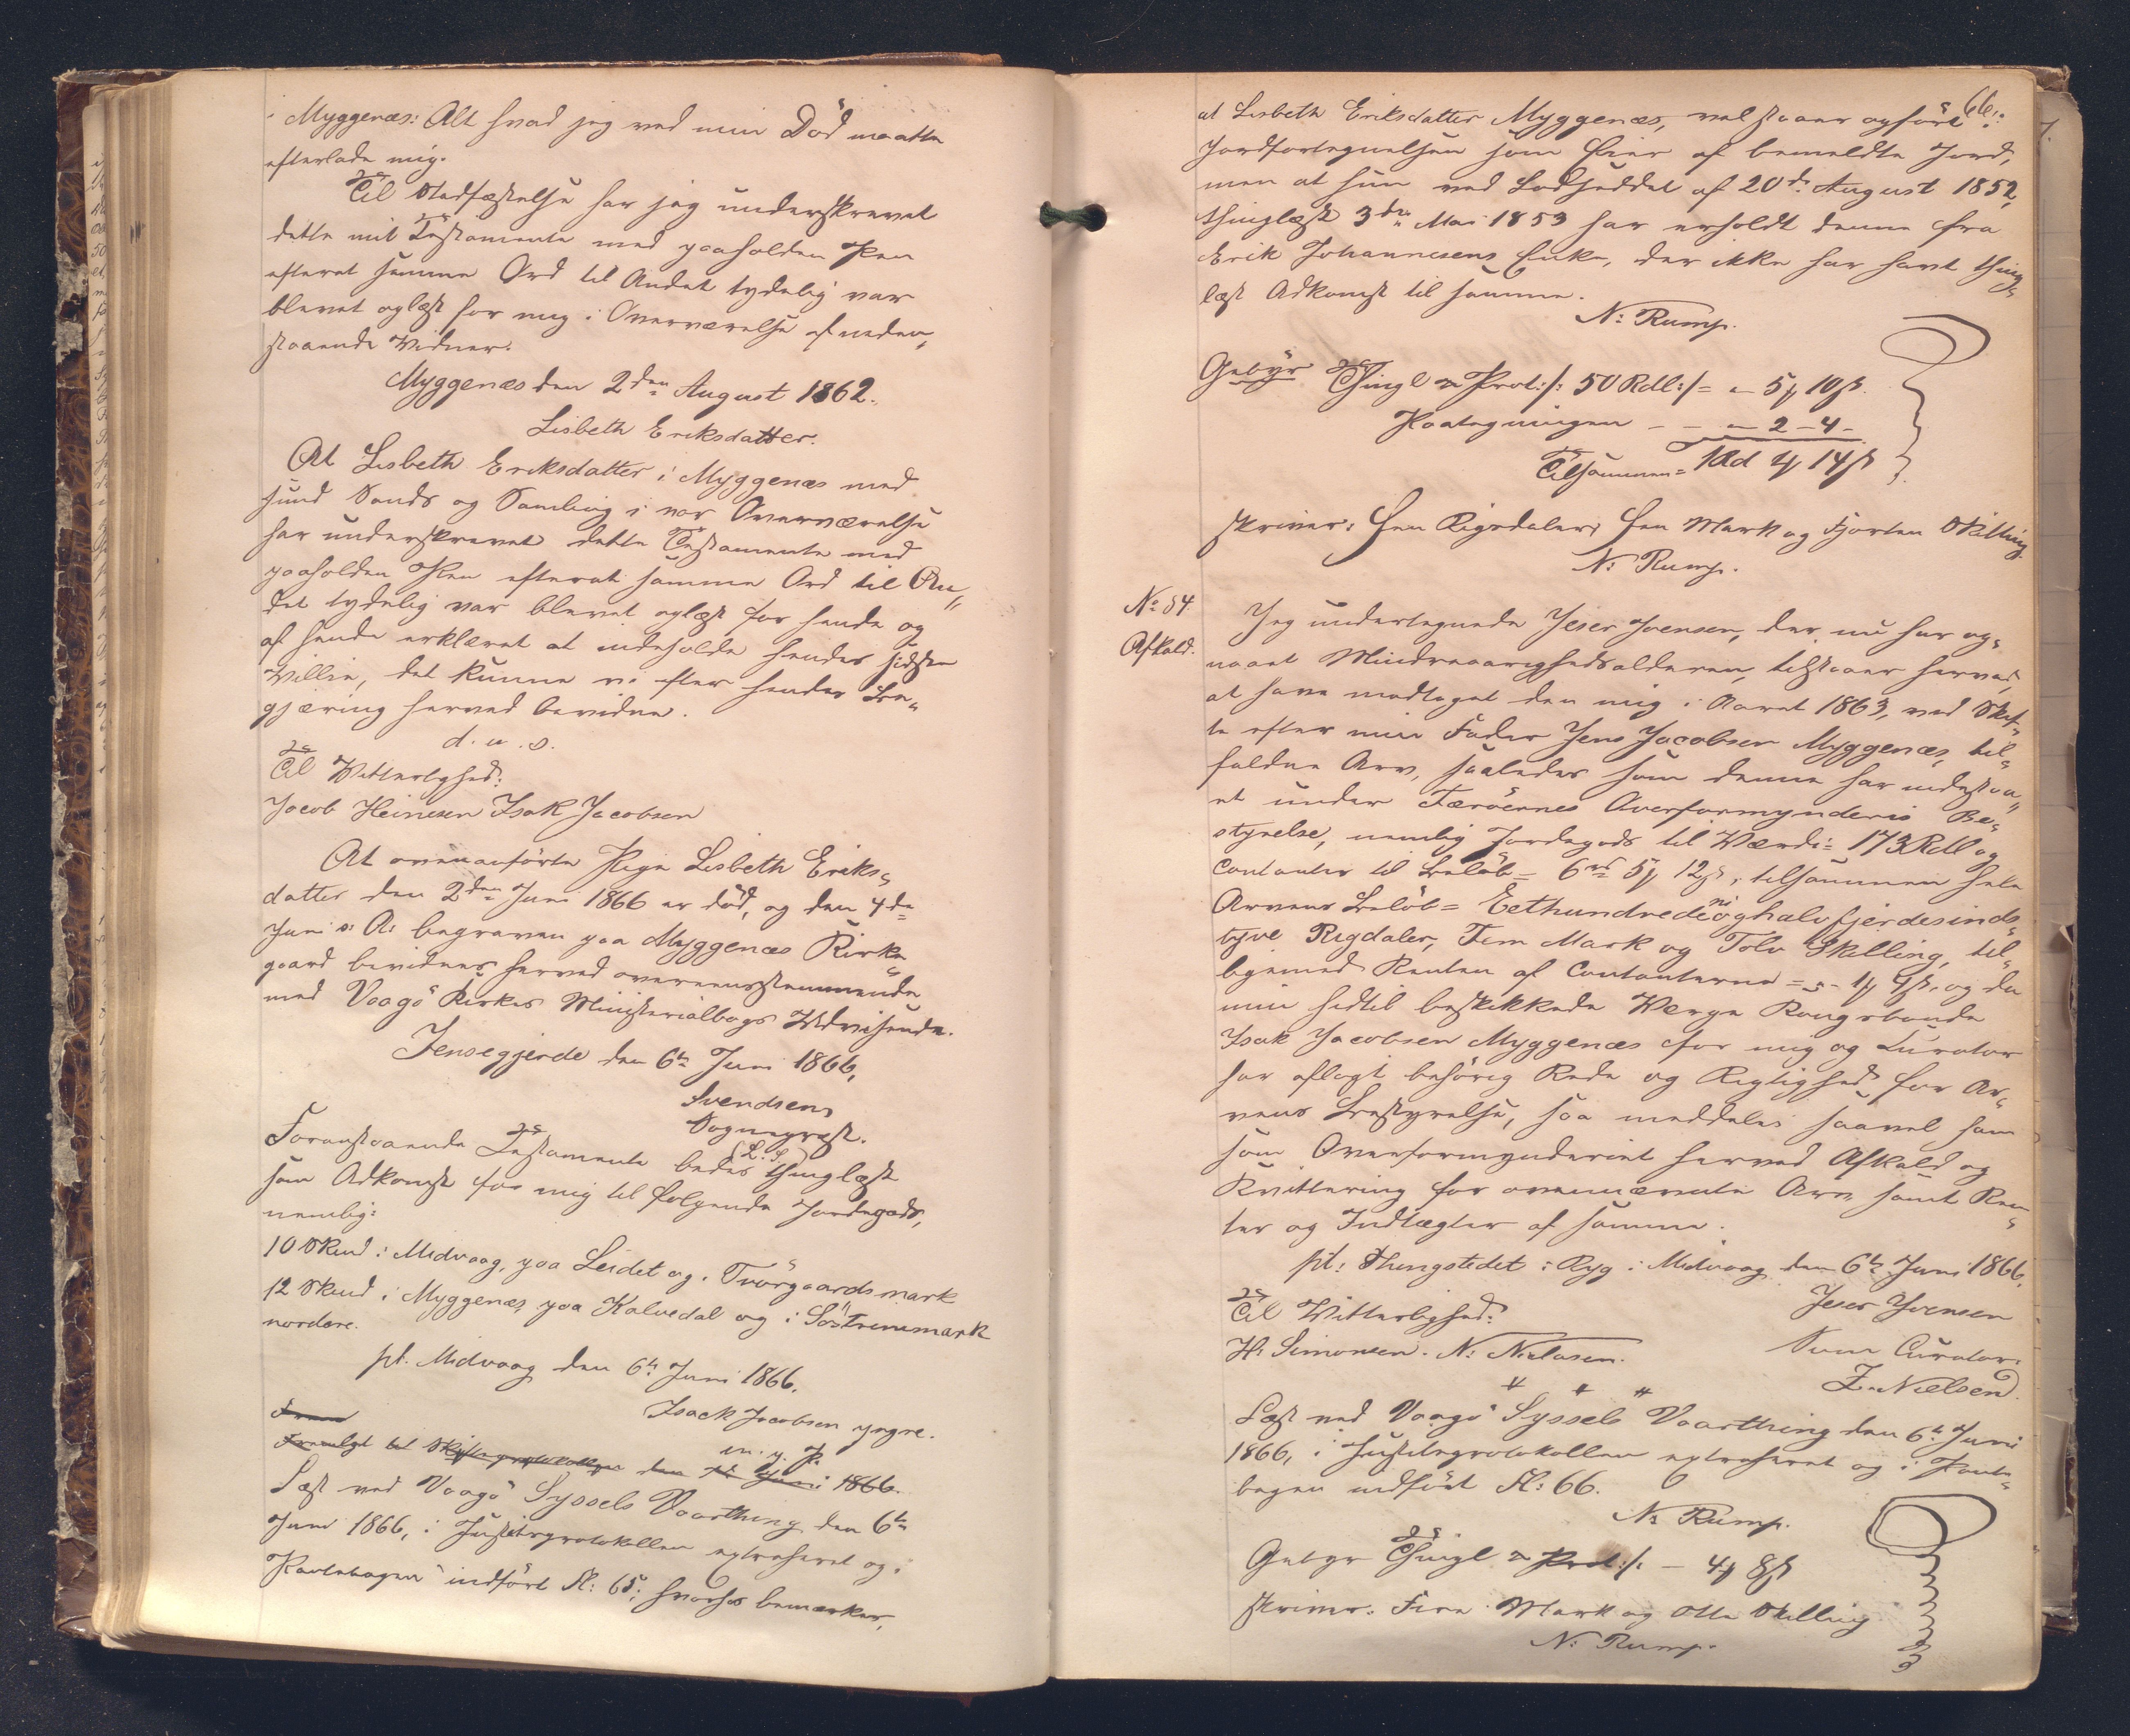 i Myggenæs: Alt hvad jeg ved min Död maatte
efterlade mig.
Til Stadfæstelse har jeg underskrevet
dette mit Testamente med paaholden Pen
efterat samme Ord til Andet tydelig var
blevet oplæst for mig i Overværelse af neden-
staaende Vidner.
Myggenæs den 2den August 1862.
Lisbeth Eriksdatter.
At Lisbeth Eriksdatter i Myggenæs med
sund Sands og Samling i vor Overværelse
har underskrevet dette Testamente med
paaholden Pen efterat samme Ord til An-
det tydelig var blevet oplæst for hende og
af hende erklæret at indeholde hendes sidste
Villie, det kunne vi efter hendes Be-
gjæring herved bevidne.
d. u. s.
Til Vitterlighed:
Jacob Heinesen Isak Jacobsen
At ovenanførte Pige Lisbeth Eriks-
datter den 2den Juni 1866 er död, og den 4de
Juni s: A: begraven paa Myggenæs Kirke-
gaard bevidnes herved overensstemmende
med Vaagö Kirkes Ministerialbogs Udvisende.
Jensegjerde den 6te Juni 1866,
Svendsen,
Sognepræst.
(L. S.)
Foranstaaende Testamente bedes thinglæst
som Adkomst for mig til følgende Jordegods,
nemlig:
10 Skind i Midvaag, paa Leidet og i Tvörgaardsmark
12 Skind i Myggenæs paa Kalvedal og i Söstrenemark
nordere.
pt. Midvaag den 6te Juni 1866.
Isack Jacobsen yngre.
m. p. P.
Fremlgt til Skifteprotokollen den Juni 1866.
Læst ved Vaagö Syssels Vaarthing den 6te
Juni 1866, i Justitsprotokollen extraheret og i
Pantebogen indfört Fl: 65, hvorhos bemærkes,
66:
at Lisbeth Eriksdatter Myggenæs, vel staaer opfört i
Jordfortegnelsen som Eier af bemeldte Jord,
men at hun ved Lodseddel af 20de August 1852,
thinglæst 3die Mai 1853 har erholdt denne fra
Erik Johannesens Enke, der ikke har havt thing-
læst Adkomst til samme.
N: Rump.
Gebyr Thingl & Prot:/: 50 Rdl:/= - 5 Mk 10 ß.
Paategningen - - - 2 - 4 -
Tilsammen = 1 Rd 1 Mk 14 ß
skriver: Een Rigsdaler, Een Mark og Fjorten Skilling.
N: Rump.
No 84.
Afkald.
Jeg undertegnede Jeser Joensen, der nu har op-
naaet Mindreaarighedsalderen, tilstaaer herved,
at have modtaget den mig i Aaret 1863, ved Skif-
te efter min Fader Jens Jacobsen Myggenæs, til-
faldne Arv, saaledes som denne har indestaa-
et under Færöernes Overformynderis Be-
styrelse, nemlig Jordegods til Værdi = 173 Rdl og
Contanter til Belöb = 6 rd 5 Mk 12 ß, tilsammen hele
Arvens Belöb = Eethundrede ni og halvfjerdesinds-
tyve Rigdaler, Fem Mark og Tolv Skilling, til-
ligemed Renten af Contanterne = - 1 Mk 4 ß, og da
min hidtil beskikkede Værge Kongsbonde
Isak Jacobsen Myggenæs for mig og Curator
har aflagt behörig Rede og Rigtighed for Ar-
vens Bestyrelse, saa meddeles saavel ham
som Overformynderiet herved Afkald og
Kvittering for ovennævnte Arv, samt Ren-
ter og Indtægter af samme.
pt: Thingstedet i Ryg i Midvaag den 6te Juni 1866.
Til Vitterlighed:
Jeser Joensen
H: Simonsen. N: Nielasen.
Som Curator:
Z. Nielsen.
Læst ved Vaagö Syssels Vaarthing den 6te Juni
1866, i Justitsprotokollen extraheret og i Pante-
bogen indfört Fl: 66.
N: Rump.
Gebyr Thingl & Prot:/: - 4 Mk 8 ß
skriver: Fire Mark og Otte Skilling
N: Rump.